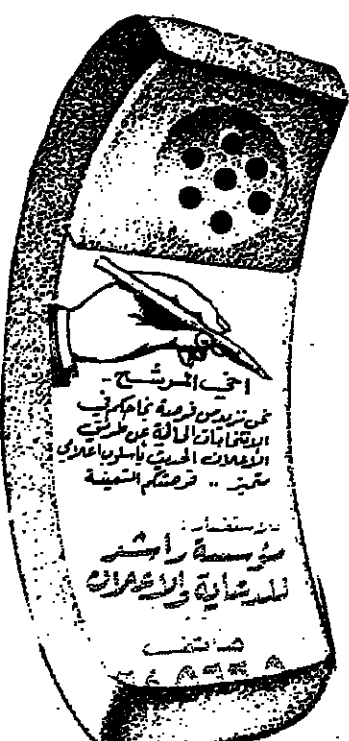 اخي المرشح -
نحن نزيد من فرصة نجاحكم في
الانتخابات الحالية عن طريق
الاعلان الحديث باسلوب اعلامي
متميز .. فرصتكم الثمينة
للاستفسار :
مؤسسة راشد
للدعاية والاعلان
هاتف